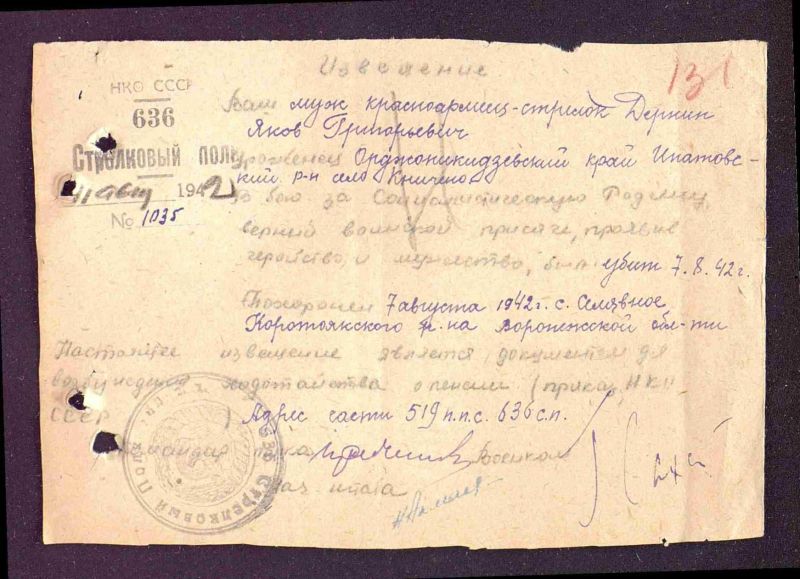 Извещение
131
НКО СССР
636
Стрелковый полк
11 авг 1942
№ 1035
Ваш муж красноармиец-стрелок Деркин
Яков Григорьевич
уроженец Орджоникидзевский край Ипатовс-
кий р-н село Кничено
В бою за Социалистическую Родину,
верный воинской присяге, проявив
геройство и мужество, был убит 7.8.42г.
Похоронен 7 августа 1942г. с. Селявное
Коротоякского р.на Воронежской обл-ти
Настоящее извещение является документом для
возбуждения ходатайства о пенсии (приказ НКО
СССР
Адрес части 519 п.п.с. 636 с.п.
Командир полка Военком
Нач. штаба
636 Стрелковый Полк